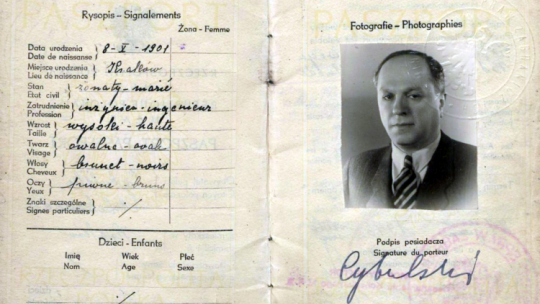 Rysopis – Signalements
Żona - Femme
Data urodzenia } 8 - X - 1901
Date de naissance
Miejsce urodzenia } Kraków
Lieu de naissance
Stan } żonaty - marié
Etat civil
Zatrudnienie } inżynier - ingenieur
Profession
Wzrost } wysoki - haute
Taille
Twarz } owalna - oval
Visage
Włosy } brunet - noirs
Cheveux
Oczy } piwne - bruns
Yeux
Znaki szczególne } ⁒
Signes particuliers
Dzieci - Enfants
Imię Wiek Płeć
Nom Age Sexe
⁒
Fotografie – Photographies
Podpis posiadacza
Signature du porteur
Cybulski